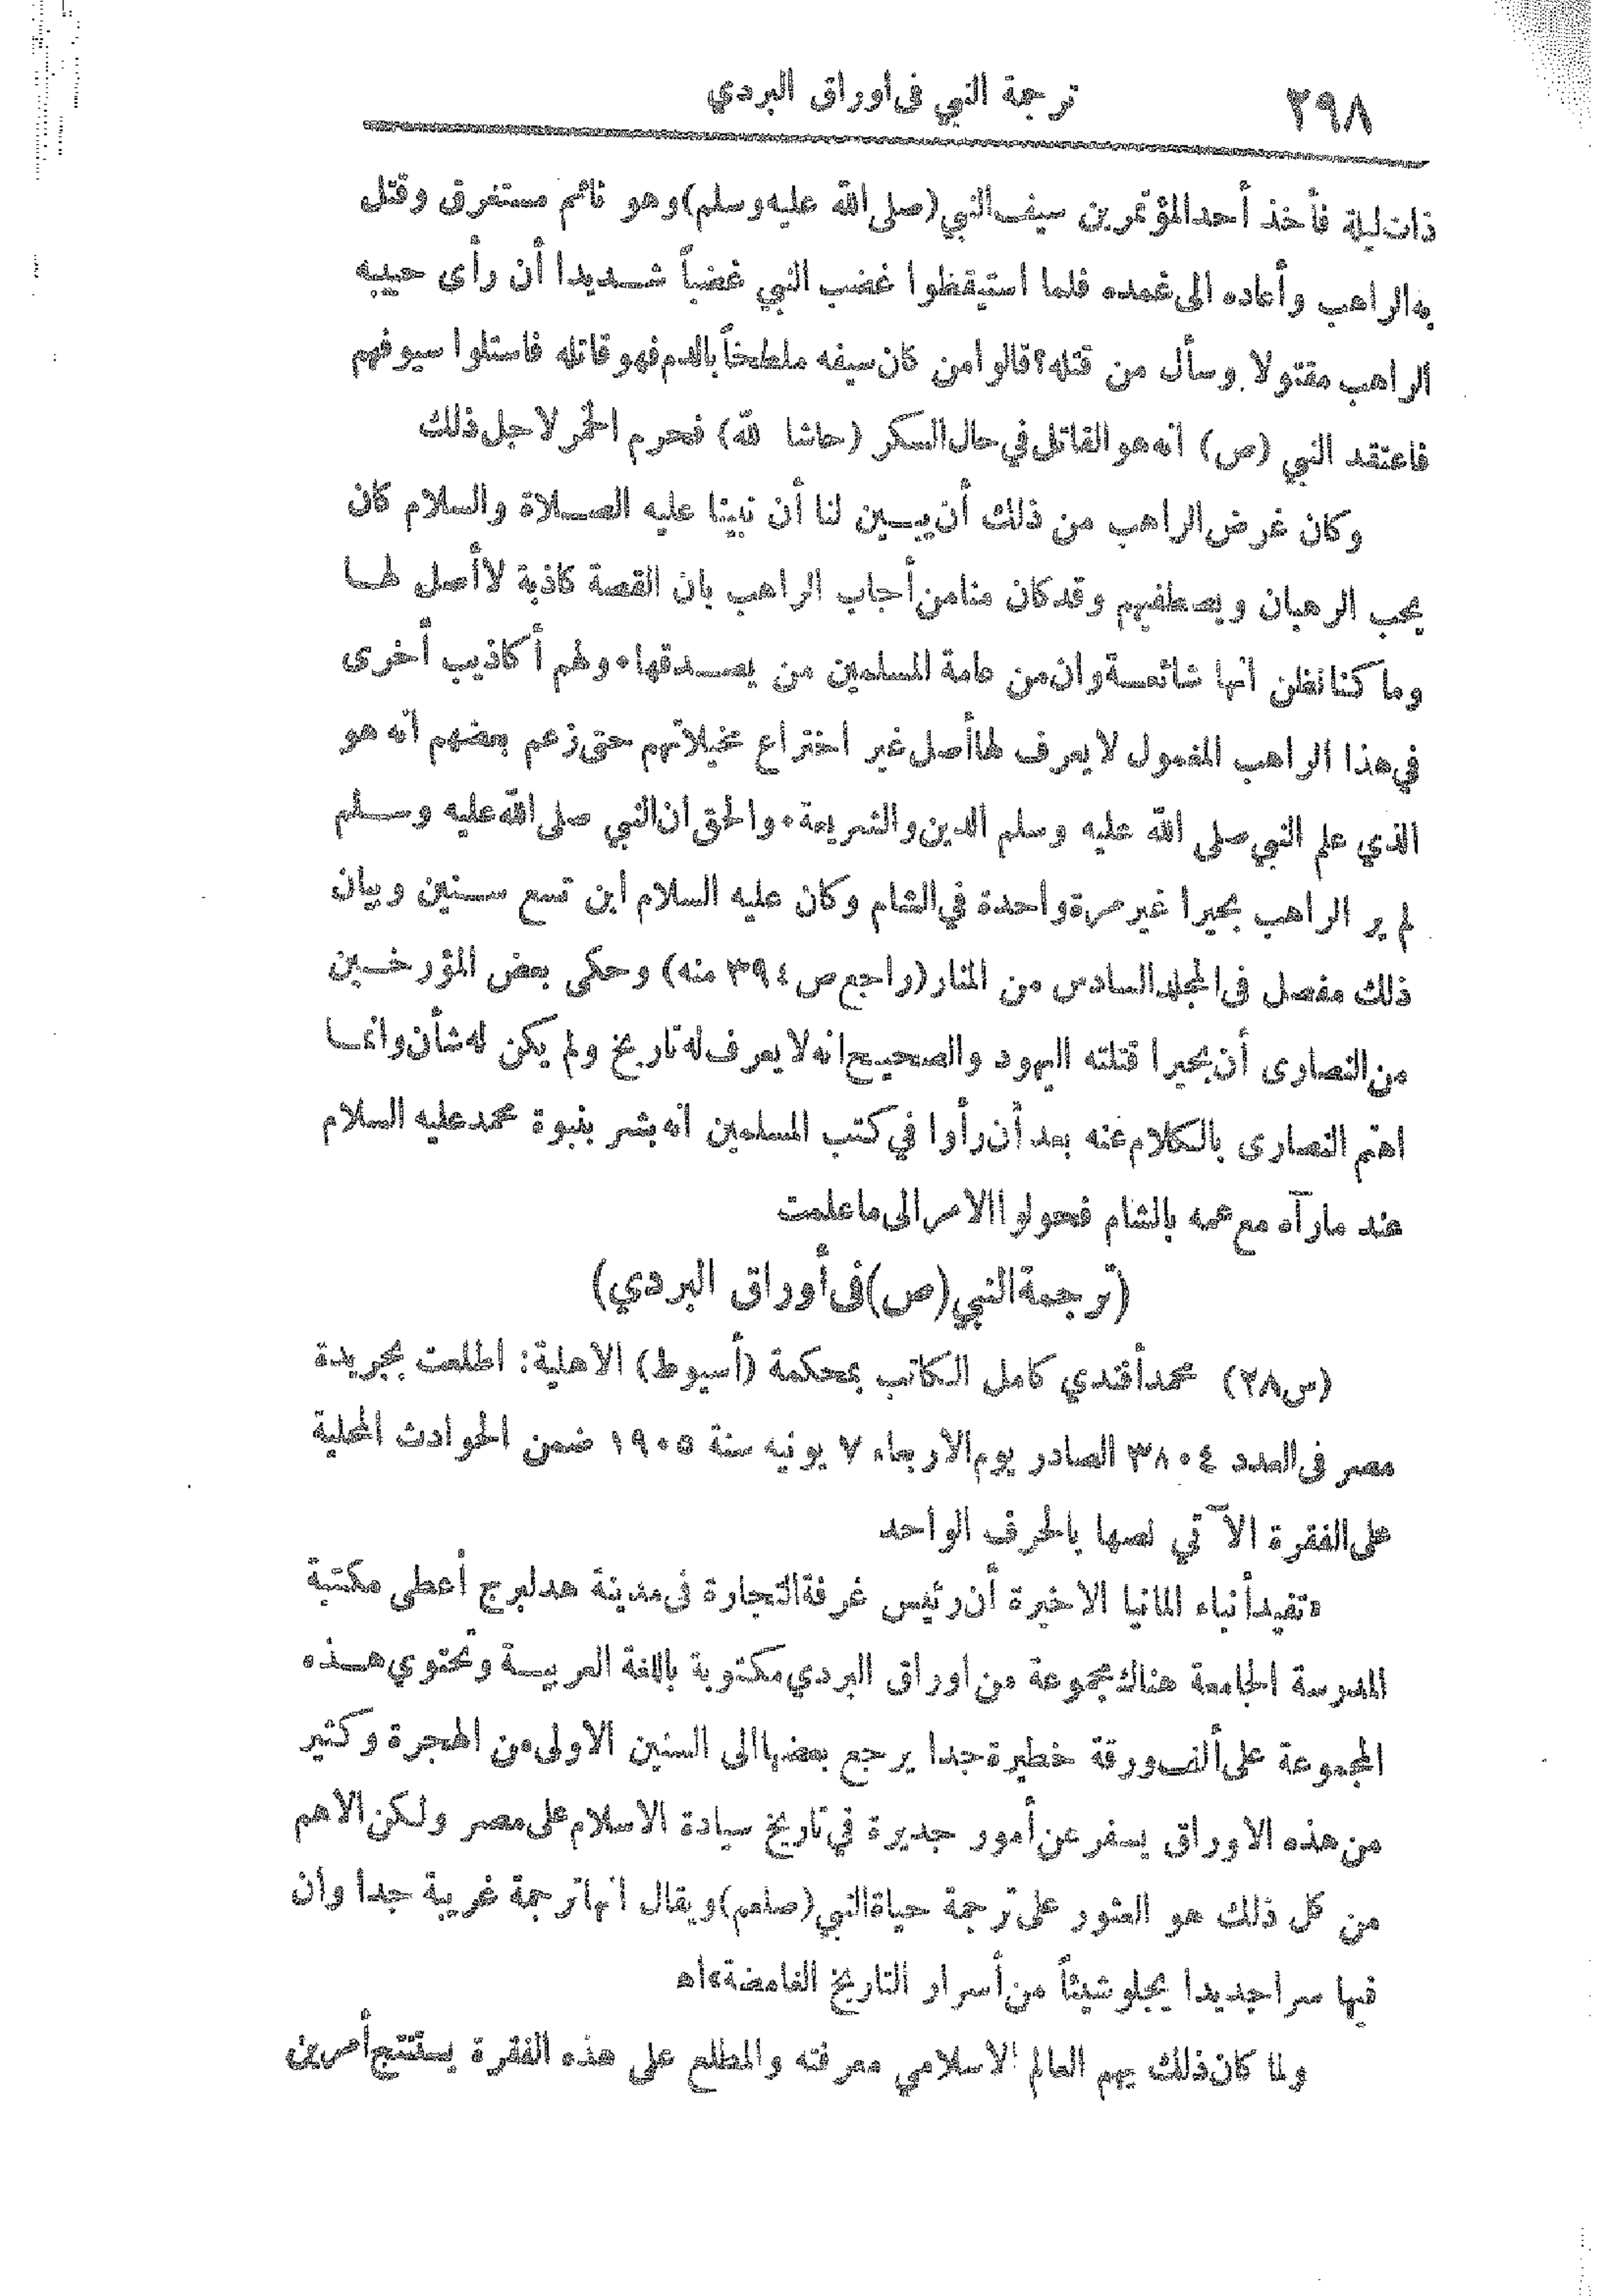 ٣٩٨ ترجمة النبي في اوراق البردي
ذات ليلة فأخذ أحد المؤتمرين سيف النبي (صلى الله عليه وسلم) وهو نائم مستغرق وقتل
به الراهب وأعاده الى غمده فلما استيقظوا غضب النبي غضباً شديدا أن رأى حبيبه
الراهب مقتولا وسأل من قتله؟ قالوا من كان سيفه ملطخاً بالدم فهو قاتله فاستلوا سيوفهم
فاعتقد النبي (ص) انه هو القاتل في حال السكر (حاشا لله) فحرم الخمر لاجل ذلك
وكان غرض الراهب من ذلك أن يبين لنا أن نبينا عليه الصلاة والسلام كان
يحب الرهبان ويصطفيهم وقد كان منا من أجاب الراهب بان القصة كاذبة لا أصل لها
وما كنا نظن انها شائعة وان من عامة المسلمين من يصدقها. ولهم أكاذيب أخرى
في هذا الراهب المغمول لا يعرف لها أصل غير اختراع مخيلاتهم حتى زعم بعضهم انه هو
الذي علم النبي صلى الله عليه وسلم الدين والشريعة. والحق ان النبي صلى الله عليه وسلم
لم ير الراهب بحيرا غير مرة واحدة في الشام وكان عليه السلام ابن تسع سنين وبيان
ذلك مفصل في المجلد السادس من المنار (راجع ص ٣٩٤ منه) وحكى بعض المؤرخين
من النصارى أن بحيرا قتلته اليهود والصحيح انه لا يعرف له تاريخ ولم يكن له شأن وانما
اهتم النصارى بالكلام عنه بعد أن رأوا في كتب المسلمين انه بشر بنبوة محمد عليه السلام
عند ما رآه مع عمه بالشام فحولوا الامر الى ما علمت
(ترجمة النبي (ص) في أوراق البردي)
(س٢٨) محمد أفندي كامل الكاتب بمحكمة (أسيوط) الاهلية: اطلعت بجريدة
مصر في العدد ٣٨٠٤ الصادر يوم الاربعاء ٧ يونيه سنة ١٩٠٥ ضمن الحوادث المحلية
على الفقرة الآتي نصها بالحرف الواحد
«تفيد أنباء المانيا الاخيرة أن رئيس غرفة التجارة في مدينة هدلبرج أعطى مكتبة
المدرسة الجامعة هناك مجموعة من اوراق البردي مكتوبة باللغة العربية وتحتوي هذه
المجموعة على ألف ورقة خطيرة جدا يرجع بعضها الى السنين الاولى من الهجرة وكثير
من هذه الاوراق يسفر عن أمور جديرة في تاريخ سيادة الاسلام على مصر ولكن الاهم
من كل ذلك هو العثور على ترجمة حياة النبي (صلعم) ويقال انها ترجمة غريبة جدا وان
فيها سرا جديدا يجلو شيئاً من أسرار التاريخ الغامضة» اه
ولما كان ذلك يهم العالم الاسلامي معرفته والمطلع على هذه الفقرة يستنتج أمرين